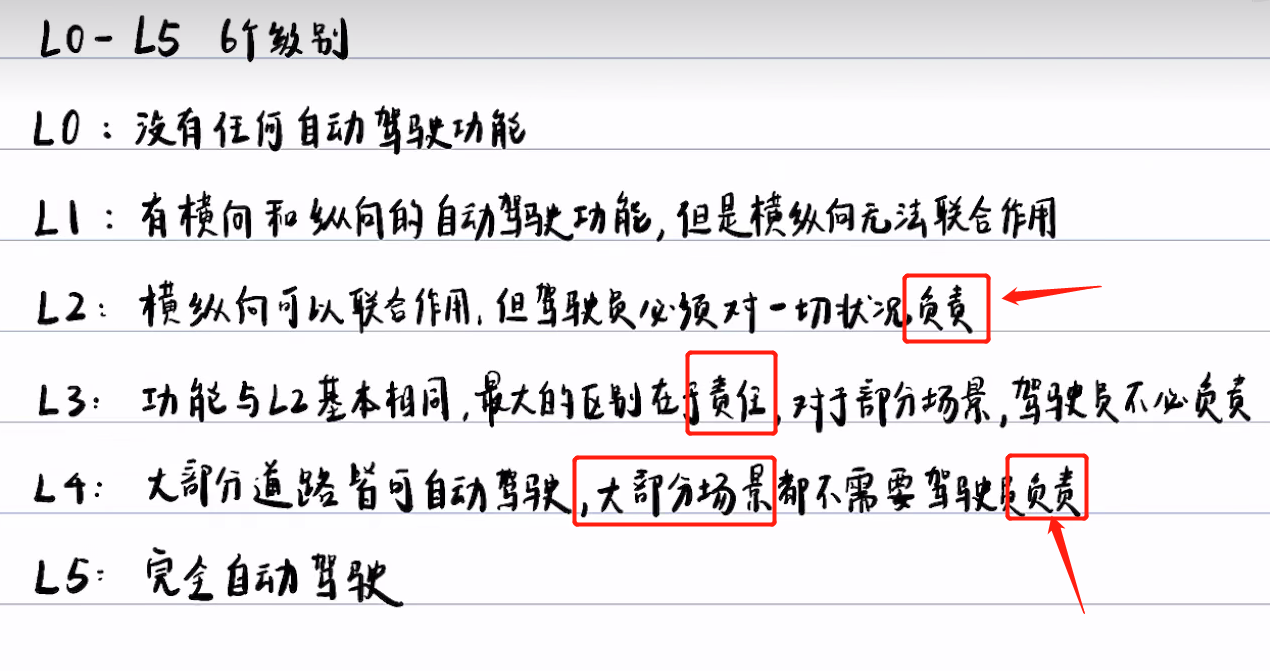 L0-L5 6个级别
L0：没有任何自动驾驶功能
L1：有横向和纵向的自动驾驶功能,但是横纵向无法联合作用
L2：横纵向可以联合作用,但驾驶员必须对一切状况负责
L3：功能与L2基本相同,最大的区别在于责任,对于部分场景,驾驶员不必负责
L4：大部分道路皆可自动驾驶,大部分场景都不需要驾驶员负责
L5：完全自动驾驶